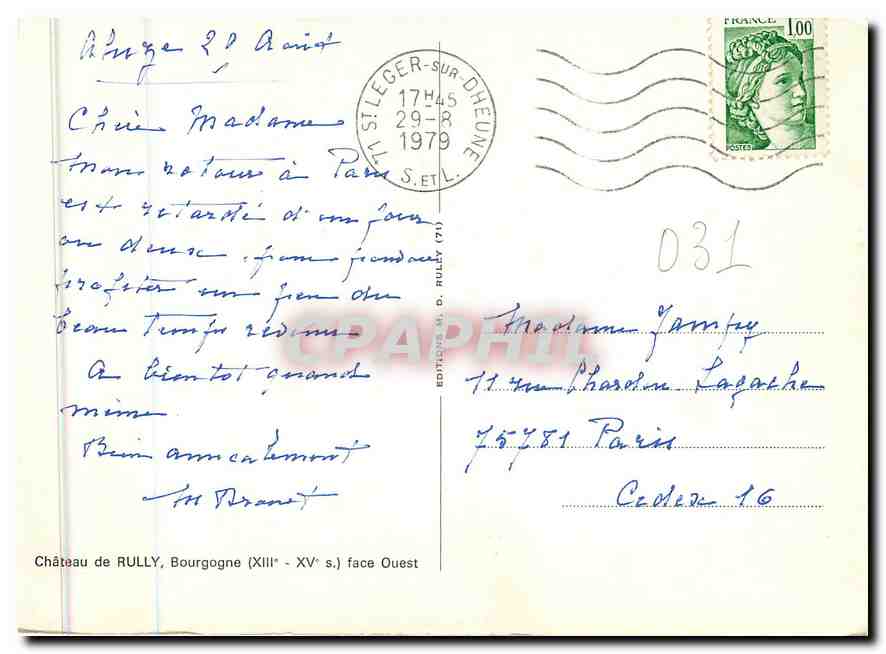 Aluze 29 Août
Chère Madame
Mon retour à Paris
est retardé d'un jour
ou deux, pour
profiter un peu du
beau temps revenu
A bientôt quand
même
Bien amicalement
M Branet
Château de RULLY, Bourgogne (XIIIe - XVe s.) face Ouest
EDITIONS M. D. RULLY (71)
71 ST LEGER-SUR-DHEUNE
17H45
29-8
1979
S. ET L.
FRANCE
1.00
POSTES
031
Madame
11 rue Chardon Lagache
75781 Paris
Cedex 16
CPAPHIL